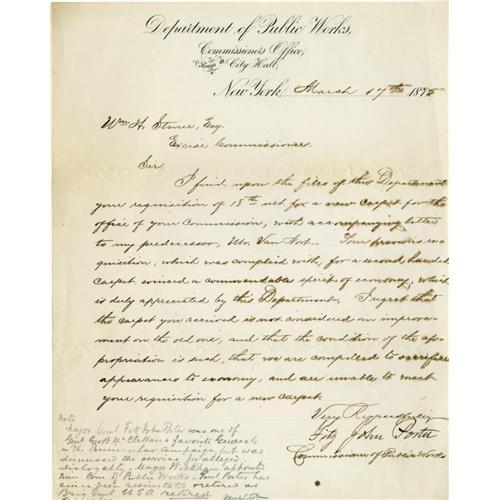 Department of Public Works,
Commissioner's Office,
Room City Hall,
New York, March 17th 1875
Wm H. Stiner, Esq.
Excise Commissioner.
Sir.
I find upon the files of this Department
your requisition of 18th ult. for a new carpet for the
office of your Commission, with accompanying letter
to my predecessor, Mr. Van Nort. Your previous re-
quisition, which was complied with, for a second handed
carpet evinced a commendable spirit of economy, which
is duly appreciated by this Department. I regret that
the carpet you received is not considered an improve-
ment on the old one, and that the condition of the ap-
propriation is such, that we are compelled to sacrifice
appearances to economy, and are unable to meet
your requisition for a new carpet.
Very Respectfully
Fitz John Porter
Commissioner of Public Works
Note
Major Genl Fitz John Porter was one of
Genl Geo B McClellans favorite Generals
in the campaign but was
dismissed the service for alleged
disloyalty. Mayor Wickham appointed
him Com of Public Works. Genl Porter has
since been reinstated & retired as
Brig Genl U S A retired